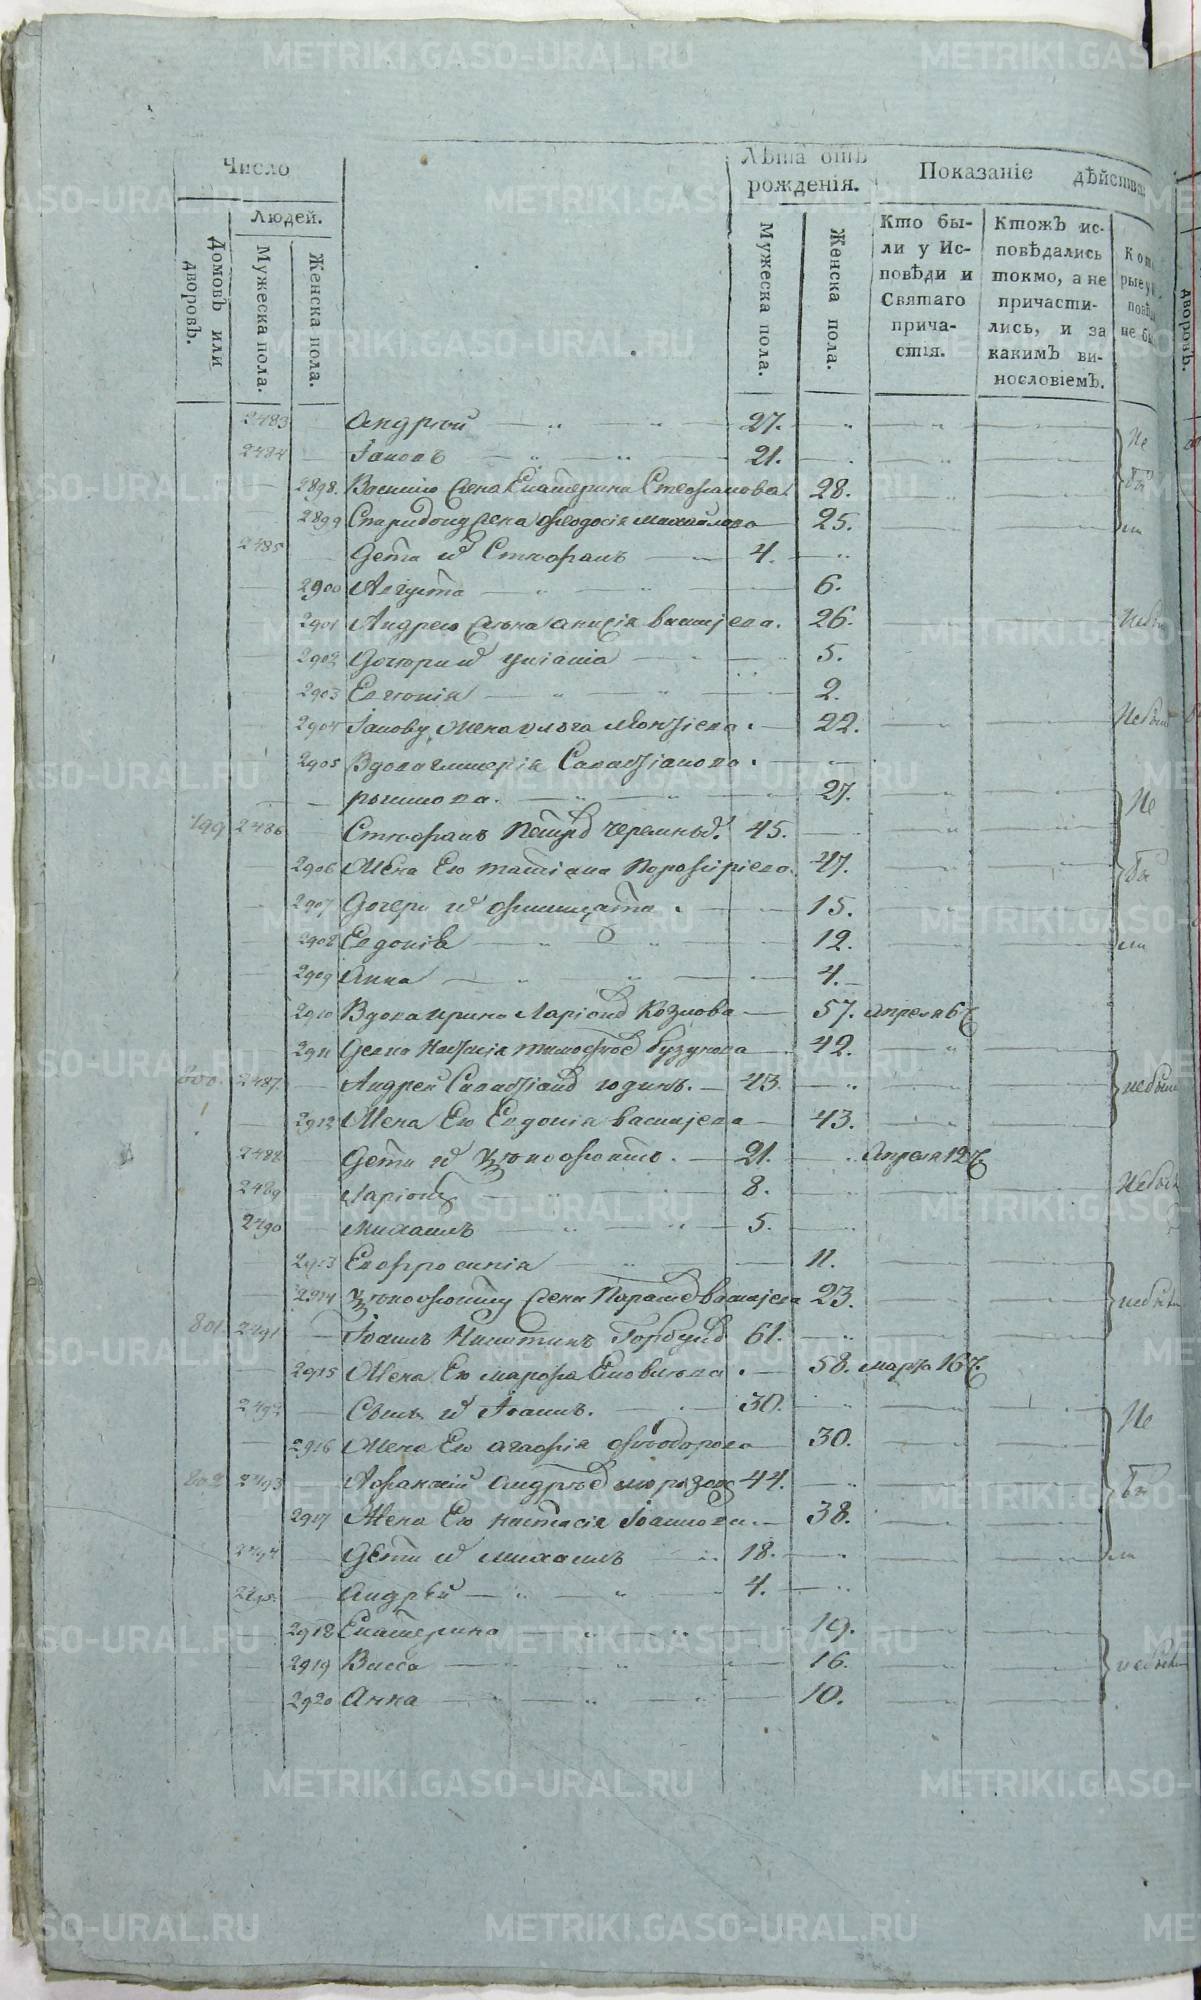 Число
Людей.
Домовъ или дворовъ.
Мужеска пола.
Женска пола.
Лѣта отъ рожденія.
Мужеска пола.
Женска пола.
Показаніе дѣйства
Кто были у Исповѣди и Святаго причастія.
Ктожъ исповѣдались токмо, а не причастились, и за какимъ винословіемъ.
дворовъ.
2483 Андрей 27.
2484 Іаковъ 21. Не
2898. Василію жена Екатерина Стефанова 28. бы
2899 Спиридону жена Феодосія Михайлова 25. ли
2485 Дети их Стефанъ 4.
2900 Августа 6.
2901 Андрею жена Анисія Васильева. 26.
2902 Дочери их 5.
2903 Евгенія 2.
2904 Іакову жена Ольга 22.
2905 Вдова Гликерія Савватіанова
27. Не
799 2486 Стефанъ Петровъ Черемных. 45.
2906 Жена Его Татіана Порфиріева 47. бы
2907 Дочери их Филицата 15.
2908 Евдокія 12. ли
2909 Анна 4.
2910 Вдова Ирина Ларіонова Козлова 57. Апреля 6
2911 Девка Настасія Тимофеева 42.
800. 2487. Андрей Савватіанов 43. небыли
2912 Жена Его Евдокія Васильева 43.
2488 Дети их 21. Апреля 12
2489 Ларіонъ 8.
2490 Михаилъ 5.
2913 Евфросинія 11.
2914 жена Параскева Васильева 23. небыли
801 2491 Іоаннъ Никитинъ Горбунов 61.
2915 Жена Его Марфа 58. марта 16
2492 Сынъ их Іоаннъ. 30. Не
2916 Жена Его Агафія Феодорова 30.
802 2493 Афанасій Андреев Морозов 44. бы
2917 Жена Его Настасія Іоаннова. 38.
2494 Дети их Михаилъ 18. ли
2495. Андрей 4.
2918 Екатерина 19.
2919 Васса 16. небыли
2920 Анна 10.
METRIKI.GASO-URAL.RU